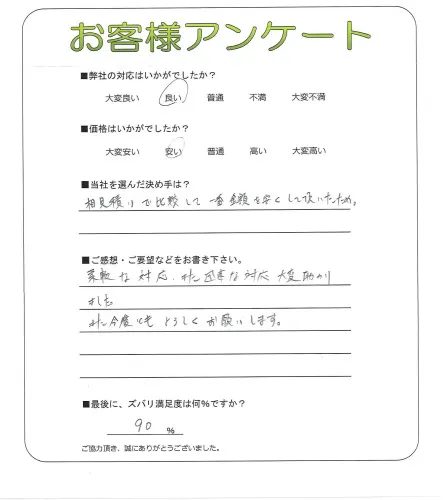 お客様アンケート
■弊社の対応はいかがでしたか？
大変良い 良い 普通 不満 大変不満
■価格はいかがでしたか？
大変安い 安い 普通 高い 大変高い
■当社を選んだ決め手は？
相見積りで比較して一番金額を安くして頂いたため。
■ご感想・ご要望などをお書き下さい。
柔軟な対応、また迅速な対応 大変助かり
ました
また今度ともよろしくお願いします。
■最後に、ズバリ満足度は何％ですか？
90 ％
ご協力頂き、誠にありがとうございました。